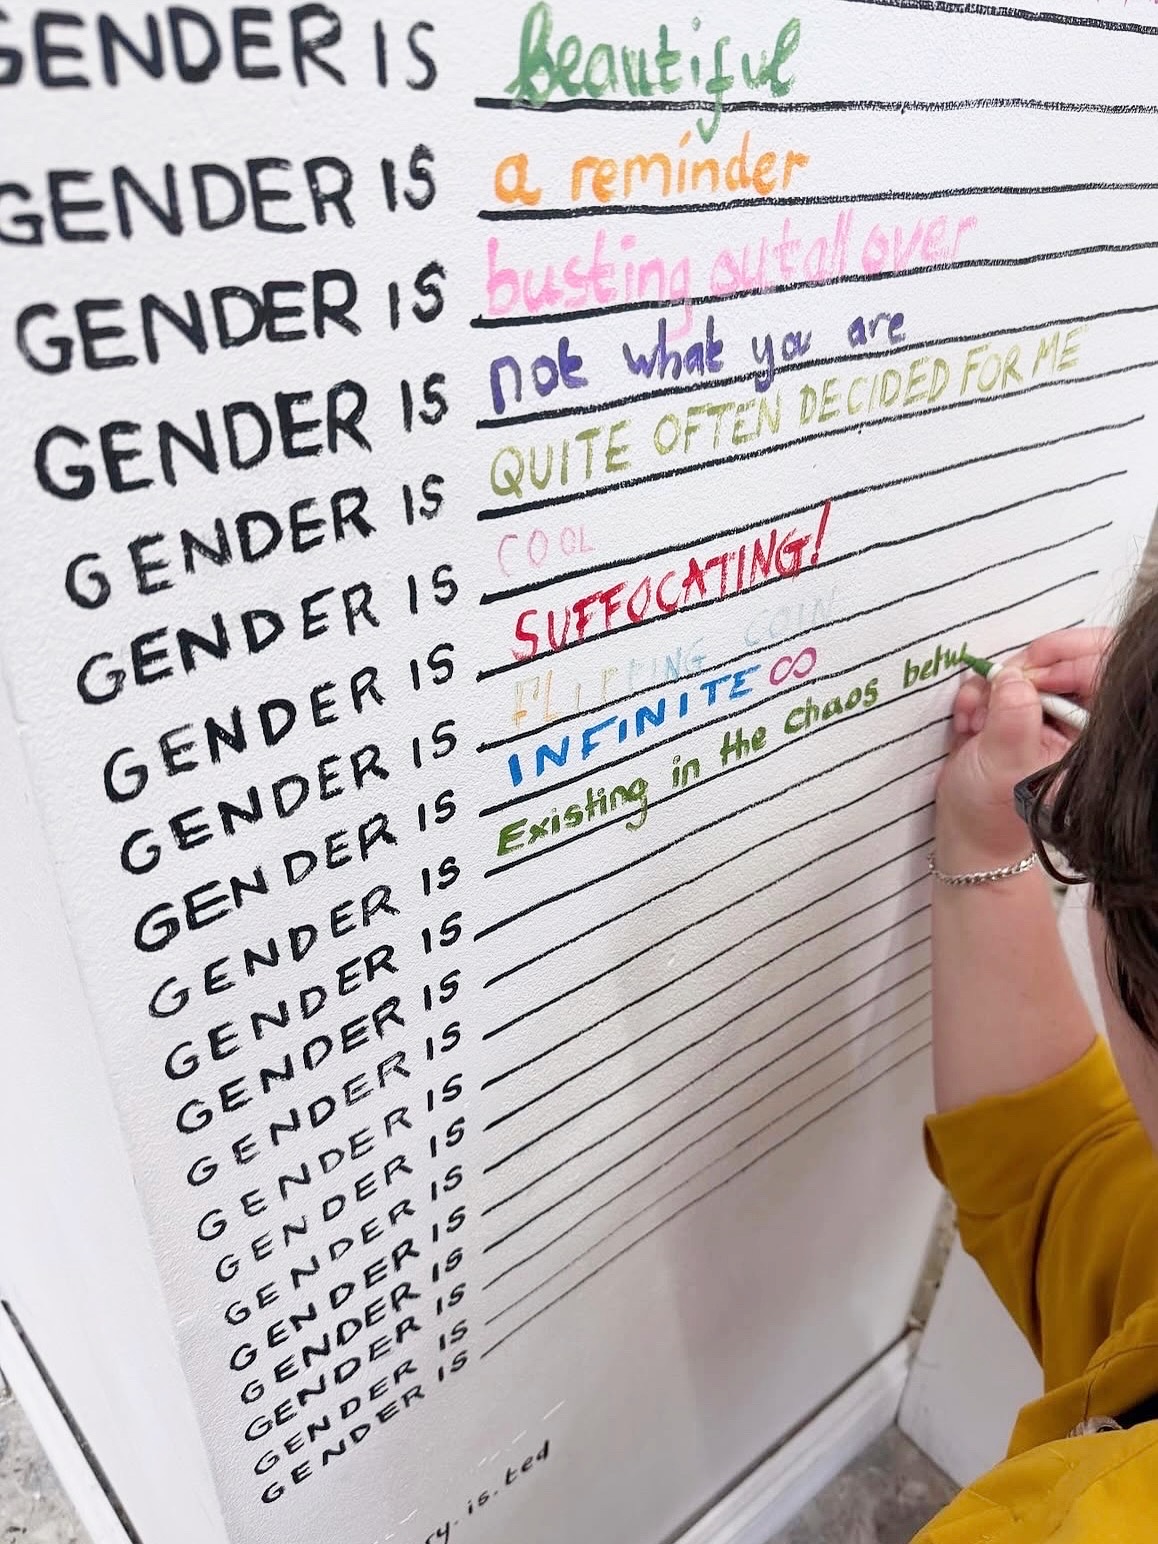 GENDER IS beautiful
GENDER IS a reminder
GENDER IS busting out all over
GENDER IS not what you are
GENDER IS QUITE OFTEN DECIDED FOR ME
GENDER IS COOL
GENDER IS SUFFOCATING!
GENDER IS FLIPPING COIN
GENDER IS INFINITE ∞
GENDER IS Existing in the chaos betw
GENDER IS
GENDER IS
GENDER IS
GENDER IS
GENDER IS
GENDER IS
GENDER IS
GENDER IS
GENDER IS
GENDER IS
GENDER IS
ry.is.ted